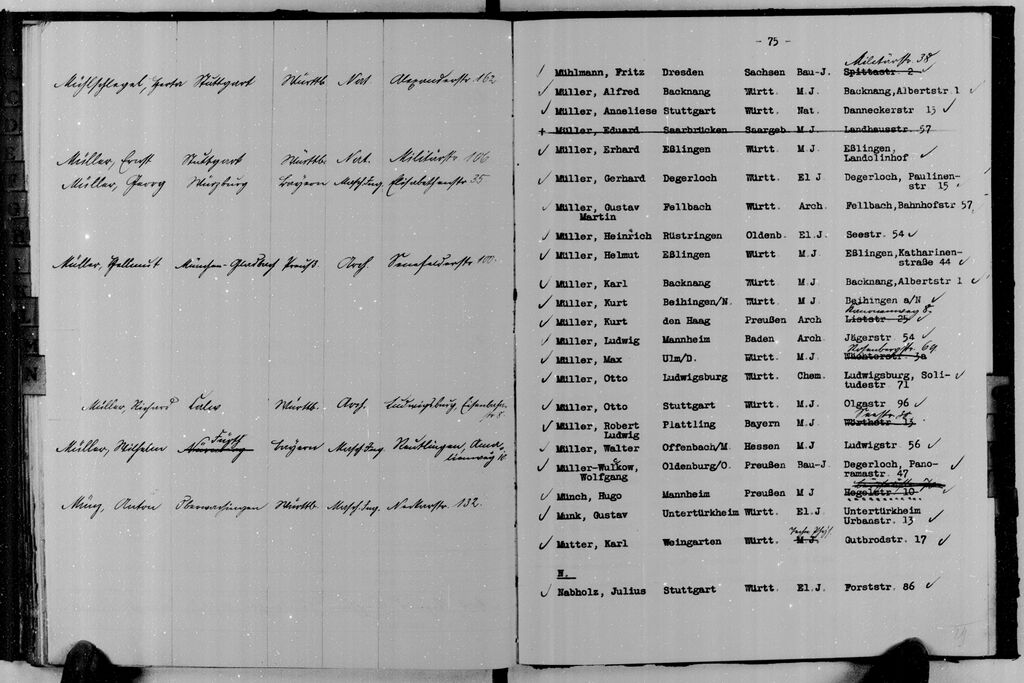 Mühlschlegel, Herta Stuttgart Württb. Nat. Alexanderstr. 162
Müller, Ernst Stuttgart Württb. Nat. Militärstr. 106
Müller, Georg Würzburg Bayern Masch.Ing. Elisabethenstr. 35
Müller, Hellmut München-Gladbach Preuß. Arch. Senefelderstr. 100
Müller, Richard Calw Württb. Arch. Ludwigsburg, Eisenbahn-
str. 5
Müller, Wilhelm Nürnberg Fürth Bayern Masch.Ing. Reutlingen, Ama-
lienweg 10
Münz, Anton Württb. Masch.Ing. Neckarstr. 132.
- 75 -
Militärstr. 38
Mühlmann, Fritz Dresden Sachsen Bau-J. Spittastr 2
✓ Müller, Alfred Backnang Württ. M.J. Backnang,Albertstr.1 ✓
✓ Müller, Anneliese Stuttgart Württ. Nat. Danneckerstr 15 ✓
+ Müller, Eduard Saarbrücken Saargeb M.J. Landhausstr. 57
✓ Müller, Erhard Eßlingen Württ. M.J. Eßlingen,
Landolinhof ✓
✓ Müller, Gerhard Degerloch Württ. El J Degerloch, Paulinen-
str 15
✓ Müller, Gustav Fellbach Württ. Arch. Fellbach,Bahnhofstr 57
Martin
✓ Müller, Heinrich Rüstringen Oldenb. El.J. Seestr. 54 ✓
✓ Müller, Helmut Eßlingen Württ. M.J Eßlingen,Katharinen-
straße 44 ✓
✓ Müller, Karl Backnang Württ. M.J Backnang,Albertstr 1 ✓
✓ Müller, Kurt Beihingen/N. Württ. M J Beihingen a/N ✓
8.
✓ Müller, Kurt den Haag Preußen Arch Liststr 25 ✓
✓ Müller, Ludwig Mannheim Baden Arch. Jägerstr 54 ✓
Rosenbergstr. 69
✓ Müller, Max Ulm/D. Württ. M.J. Wächterstr. 3a
✓ Müller, Otto Ludwigsburg Württ. Chem. Ludwigsburg, Soli-
tudestr 71 ✓
✓ Müller, Otto Stuttgart Württ. M.J. Olgastr 96 ✓
Seestr.
✓ Müller, Robert Plattling Bayern M.J. Wörthstr 13
Ludwig
✓ Müller, Walter Offenbach/M. Hessen M.J Ludwigstr 56 ✓
✓ Müller-Wulkow, Oldenburg/O. Preußen Bau-J. Degerloch, Pano-
Wolfgang ramastr. 47 ✓
✓ Münch, Hugo Mannheim Preußen M J Hegelstr/10 ✓
✓ Munk, Gustav Untertürkheim Württ. El.J. Untertürkheim
Urbanstr. 13 ✓
✓ Mutter, Karl Weingarten Württ. M J. Gutbrodstr. 17 ✓
N.
✓ Nabholz, Julius Stuttgart Württ. El.J. Forststr. 86 ✓
N